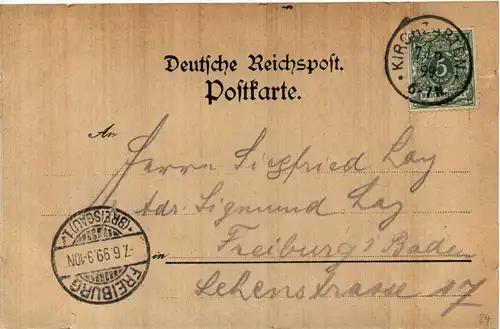 Deutsche Reichspost.
Postkarte.
KIRCHZARTEN
99
6-7N.
5
An
Herrn Siegfried Lay
Adr. Sigmund Lay
in Freiburg i Baden
Lehenstrasse 17
FREIBURG
7.6.99.9-10N
(BREISGAU)
24